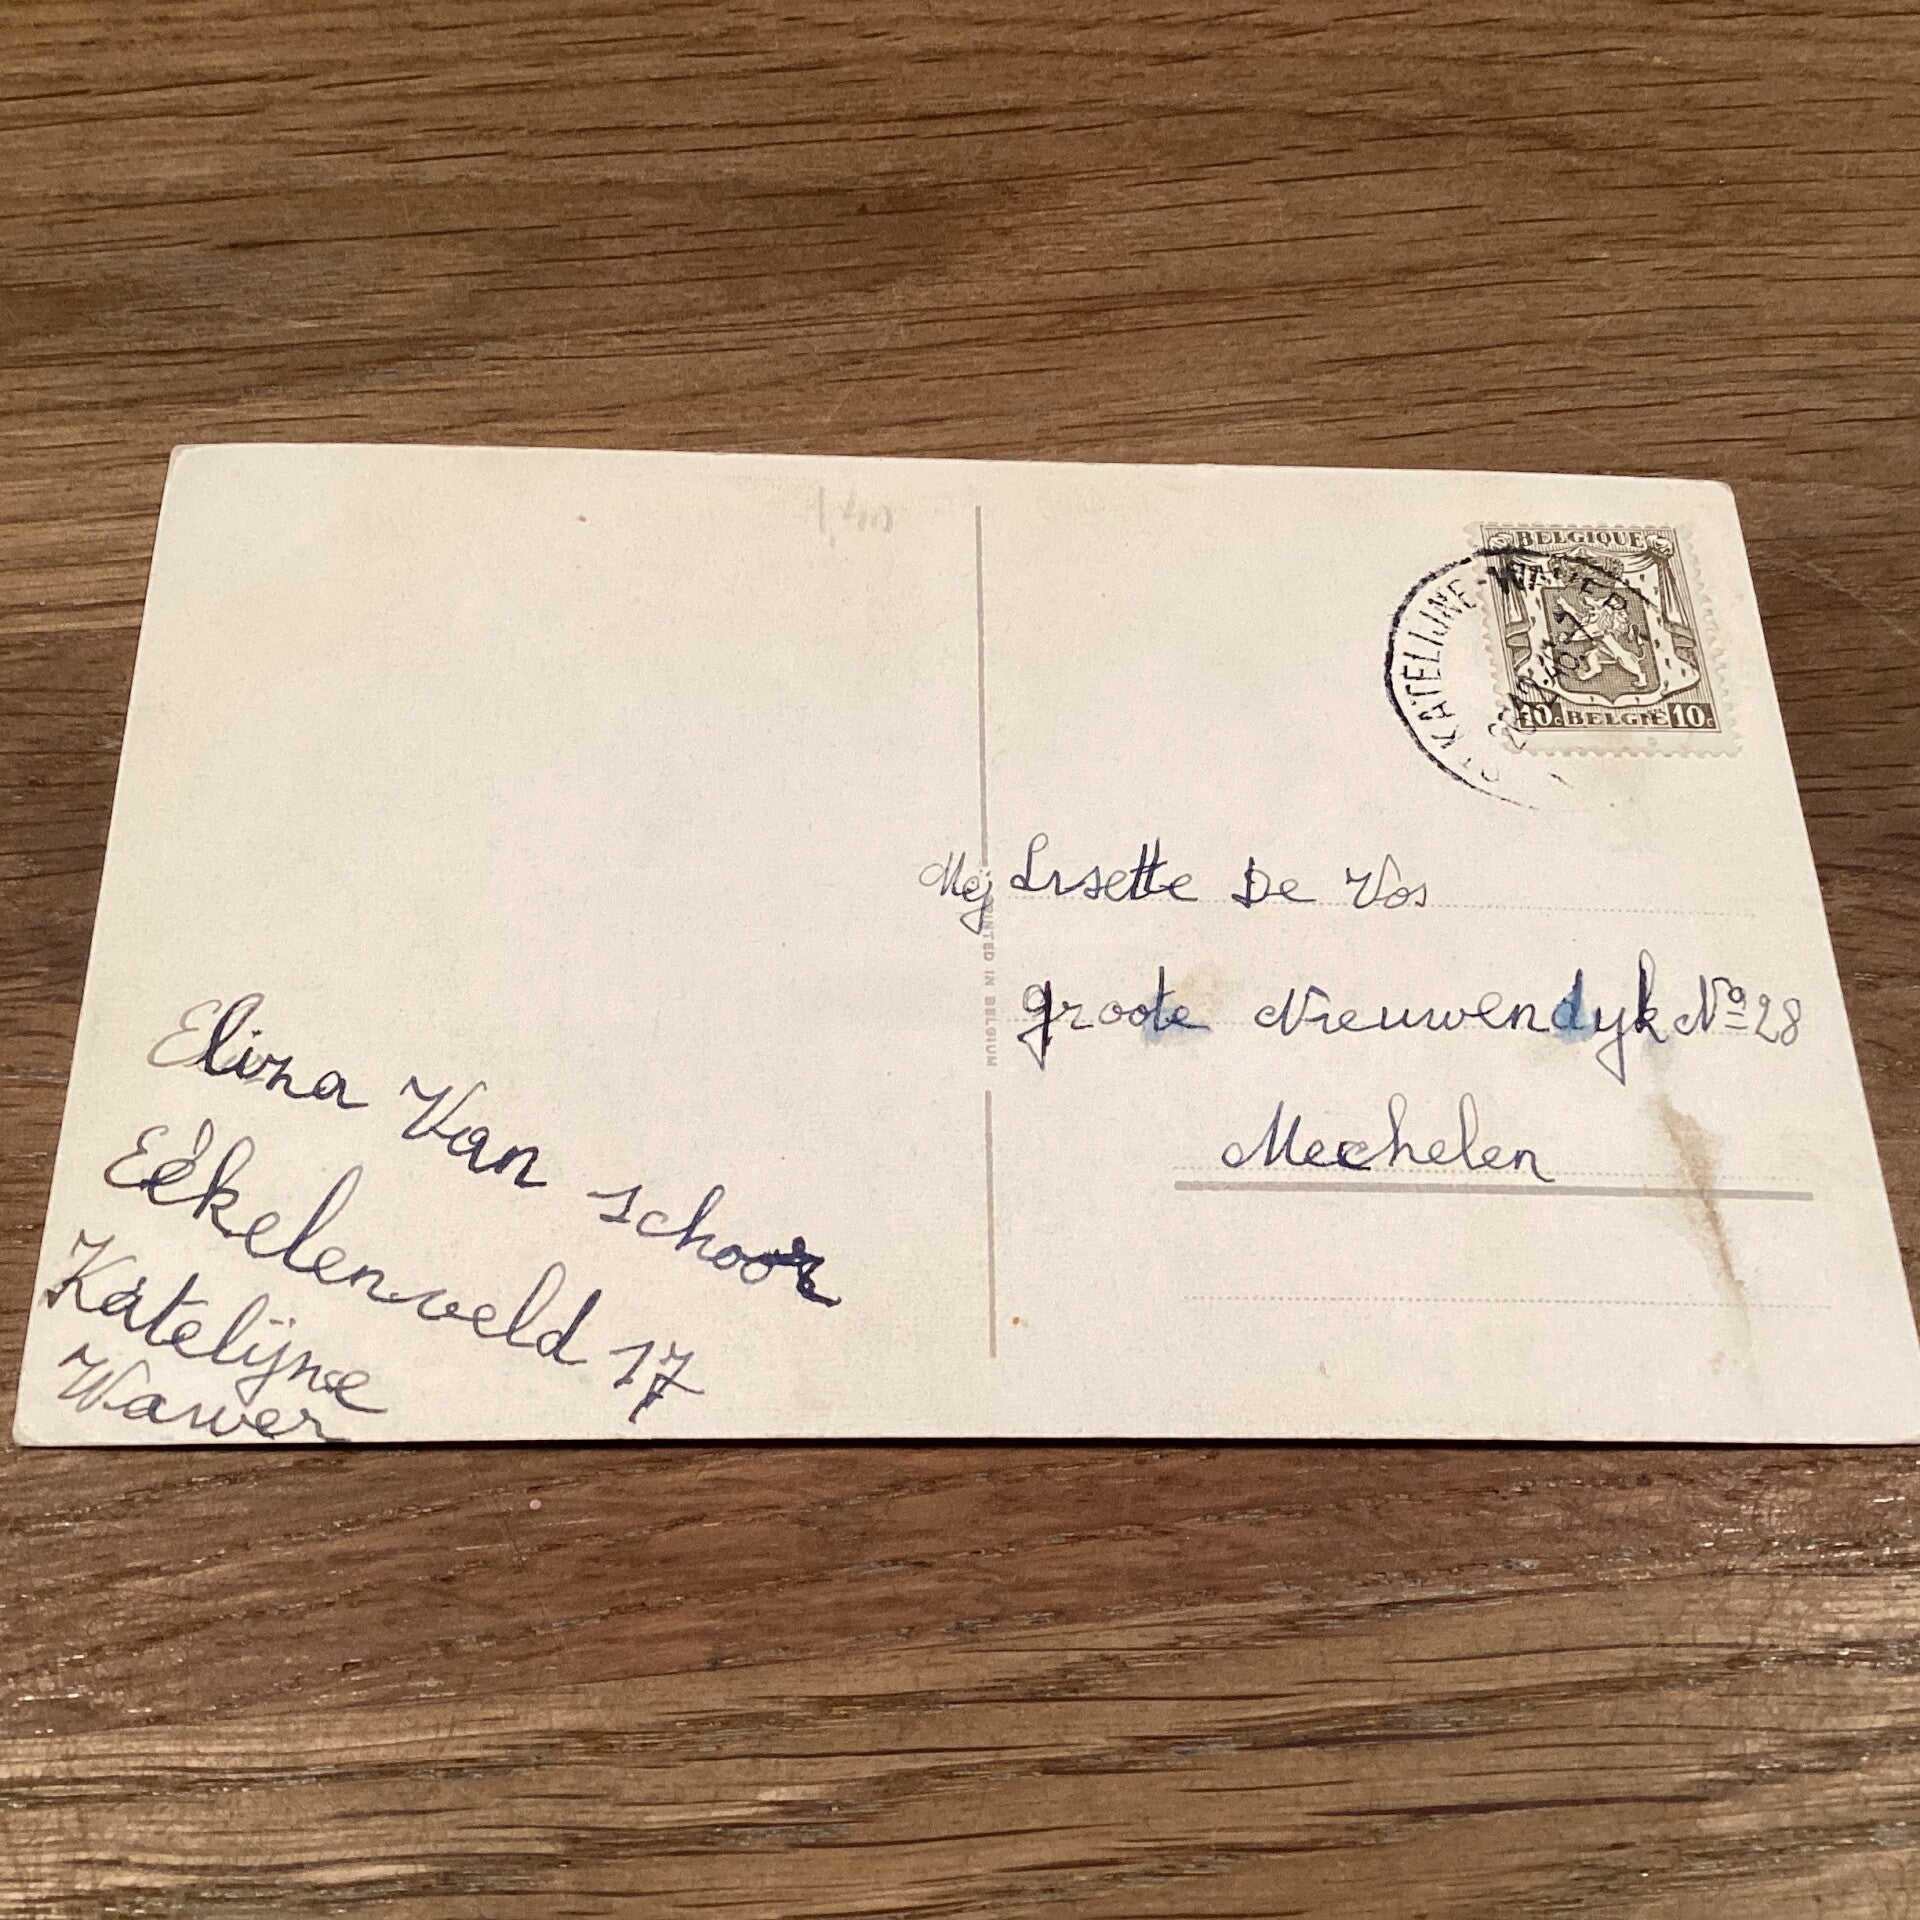 BELGIQUE
10c BELGIË 10c
ST KATELIJNE-WAVER
Mej Lisette De Vos
groote Nieuwendyk Nº 28
Mechelen
PRINTED IN BELGIUM
Elina Van schoor
Eékelenveld 17
Katelijne
Wawer